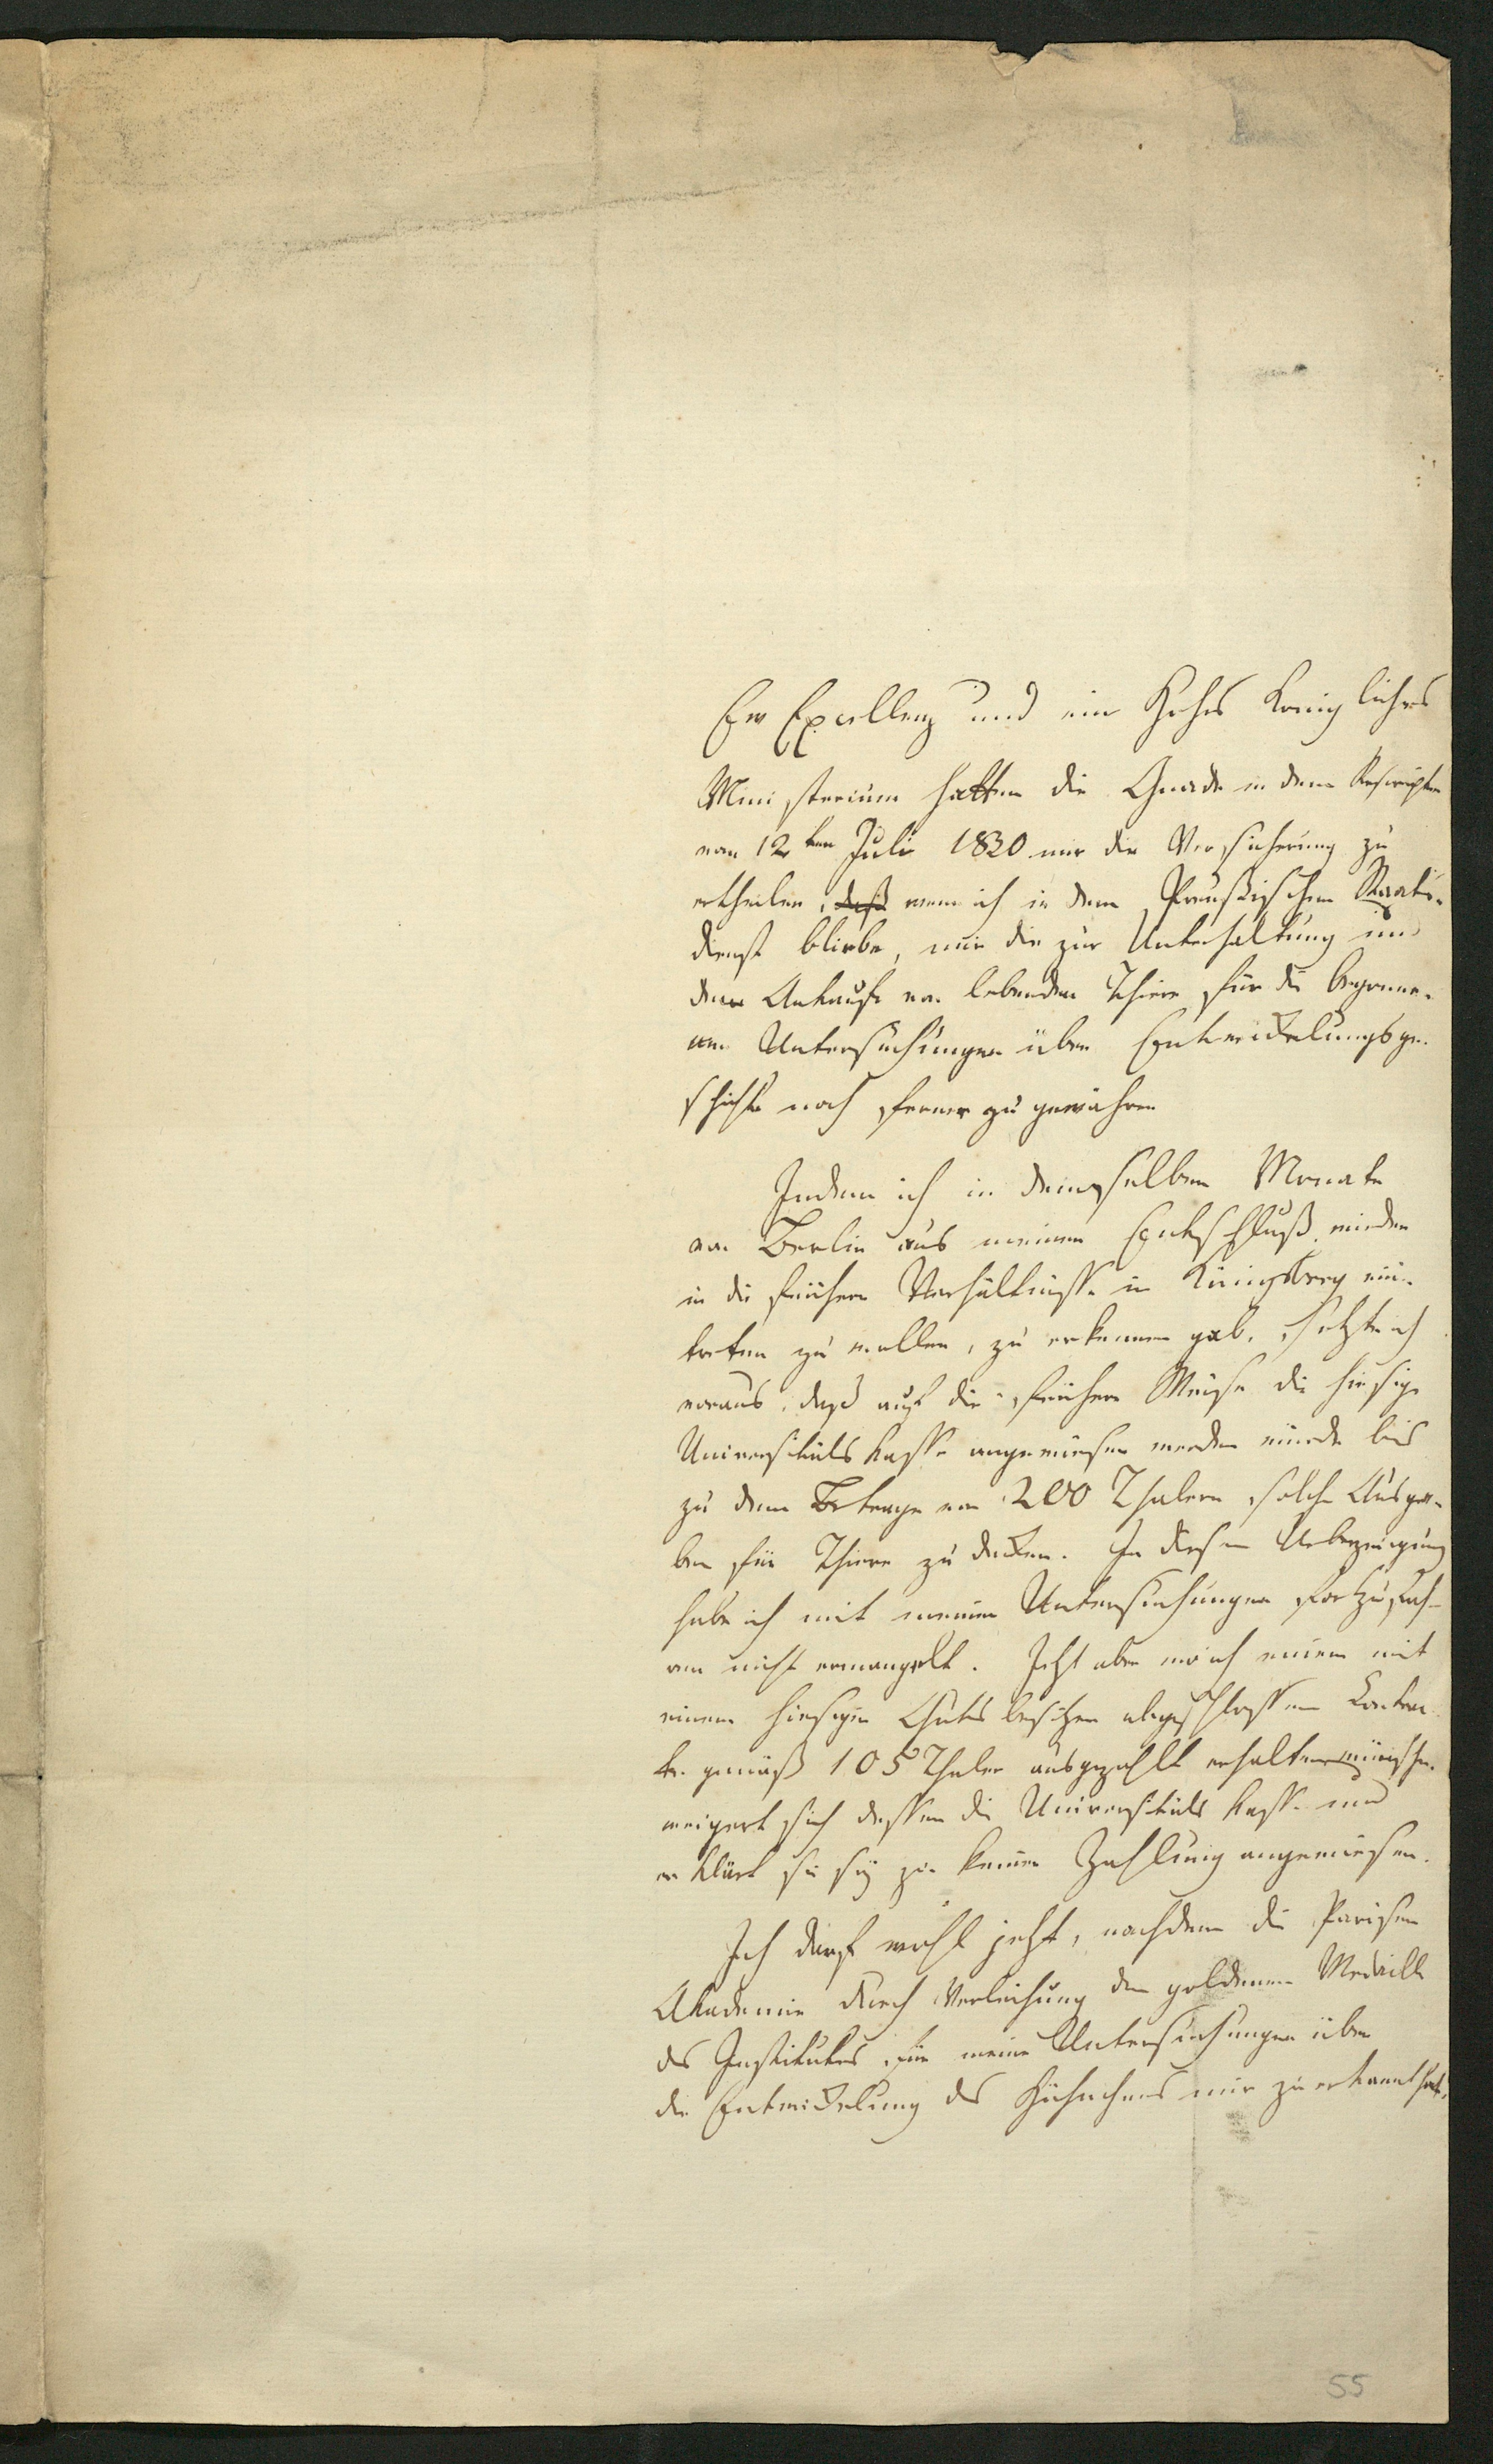 Ew Excellenz und ein Hohes Königliches
Ministerium hatten die Gnade in dem Rescripte
vom 12ten Juli 1830 mir die Versicherung zu
ertheilen, daß wenn ich in dem Preußischen Staats-
dienst bliebe, mir die zur Unterhaltung und
dem Ankaufe von lebenden Thiere für die begonne-
nen Untersuchungen über Entwickelungsge-
schichte noch ferner zu gewähren
Indem ich in demselben Monate
von Berlin aus meinen Entschluß wieder
in die frühern Verhältnisse in Königsberg ein-
treten zu wollen, zu erkennen gab, setzte ich
voraus, daß auf die frühere Weise die hiesige
Universitäts Kasse angewiesen werden würde bis
zu dem Betrage von 200 Thalern solche Ausga-
ben für Thiere zu decken. In dieser Ueberzeugung
habe ich mit meinen Untersuchungen fortzufah-
ren nicht ermangelt. Jetzt aber wo ich einem mit
einem hiesigen Gutsbesitzer abgeschlossenen Contra
kte gemäß 105 Thaler ausgezahlt erhalten wünsche
weigert sich dessen die Universitäts Kasse und
erklärt sie sey zu keiner Zahlung angewiesen.
Ich darf wohl jetzt, nachdem die Pariser
Akademie durch Verleihung der goldenen Medaille
des Institutes für meine Untersuchungen über
die Entwickelung des Hühnchens mir zuerkannt hat,
55